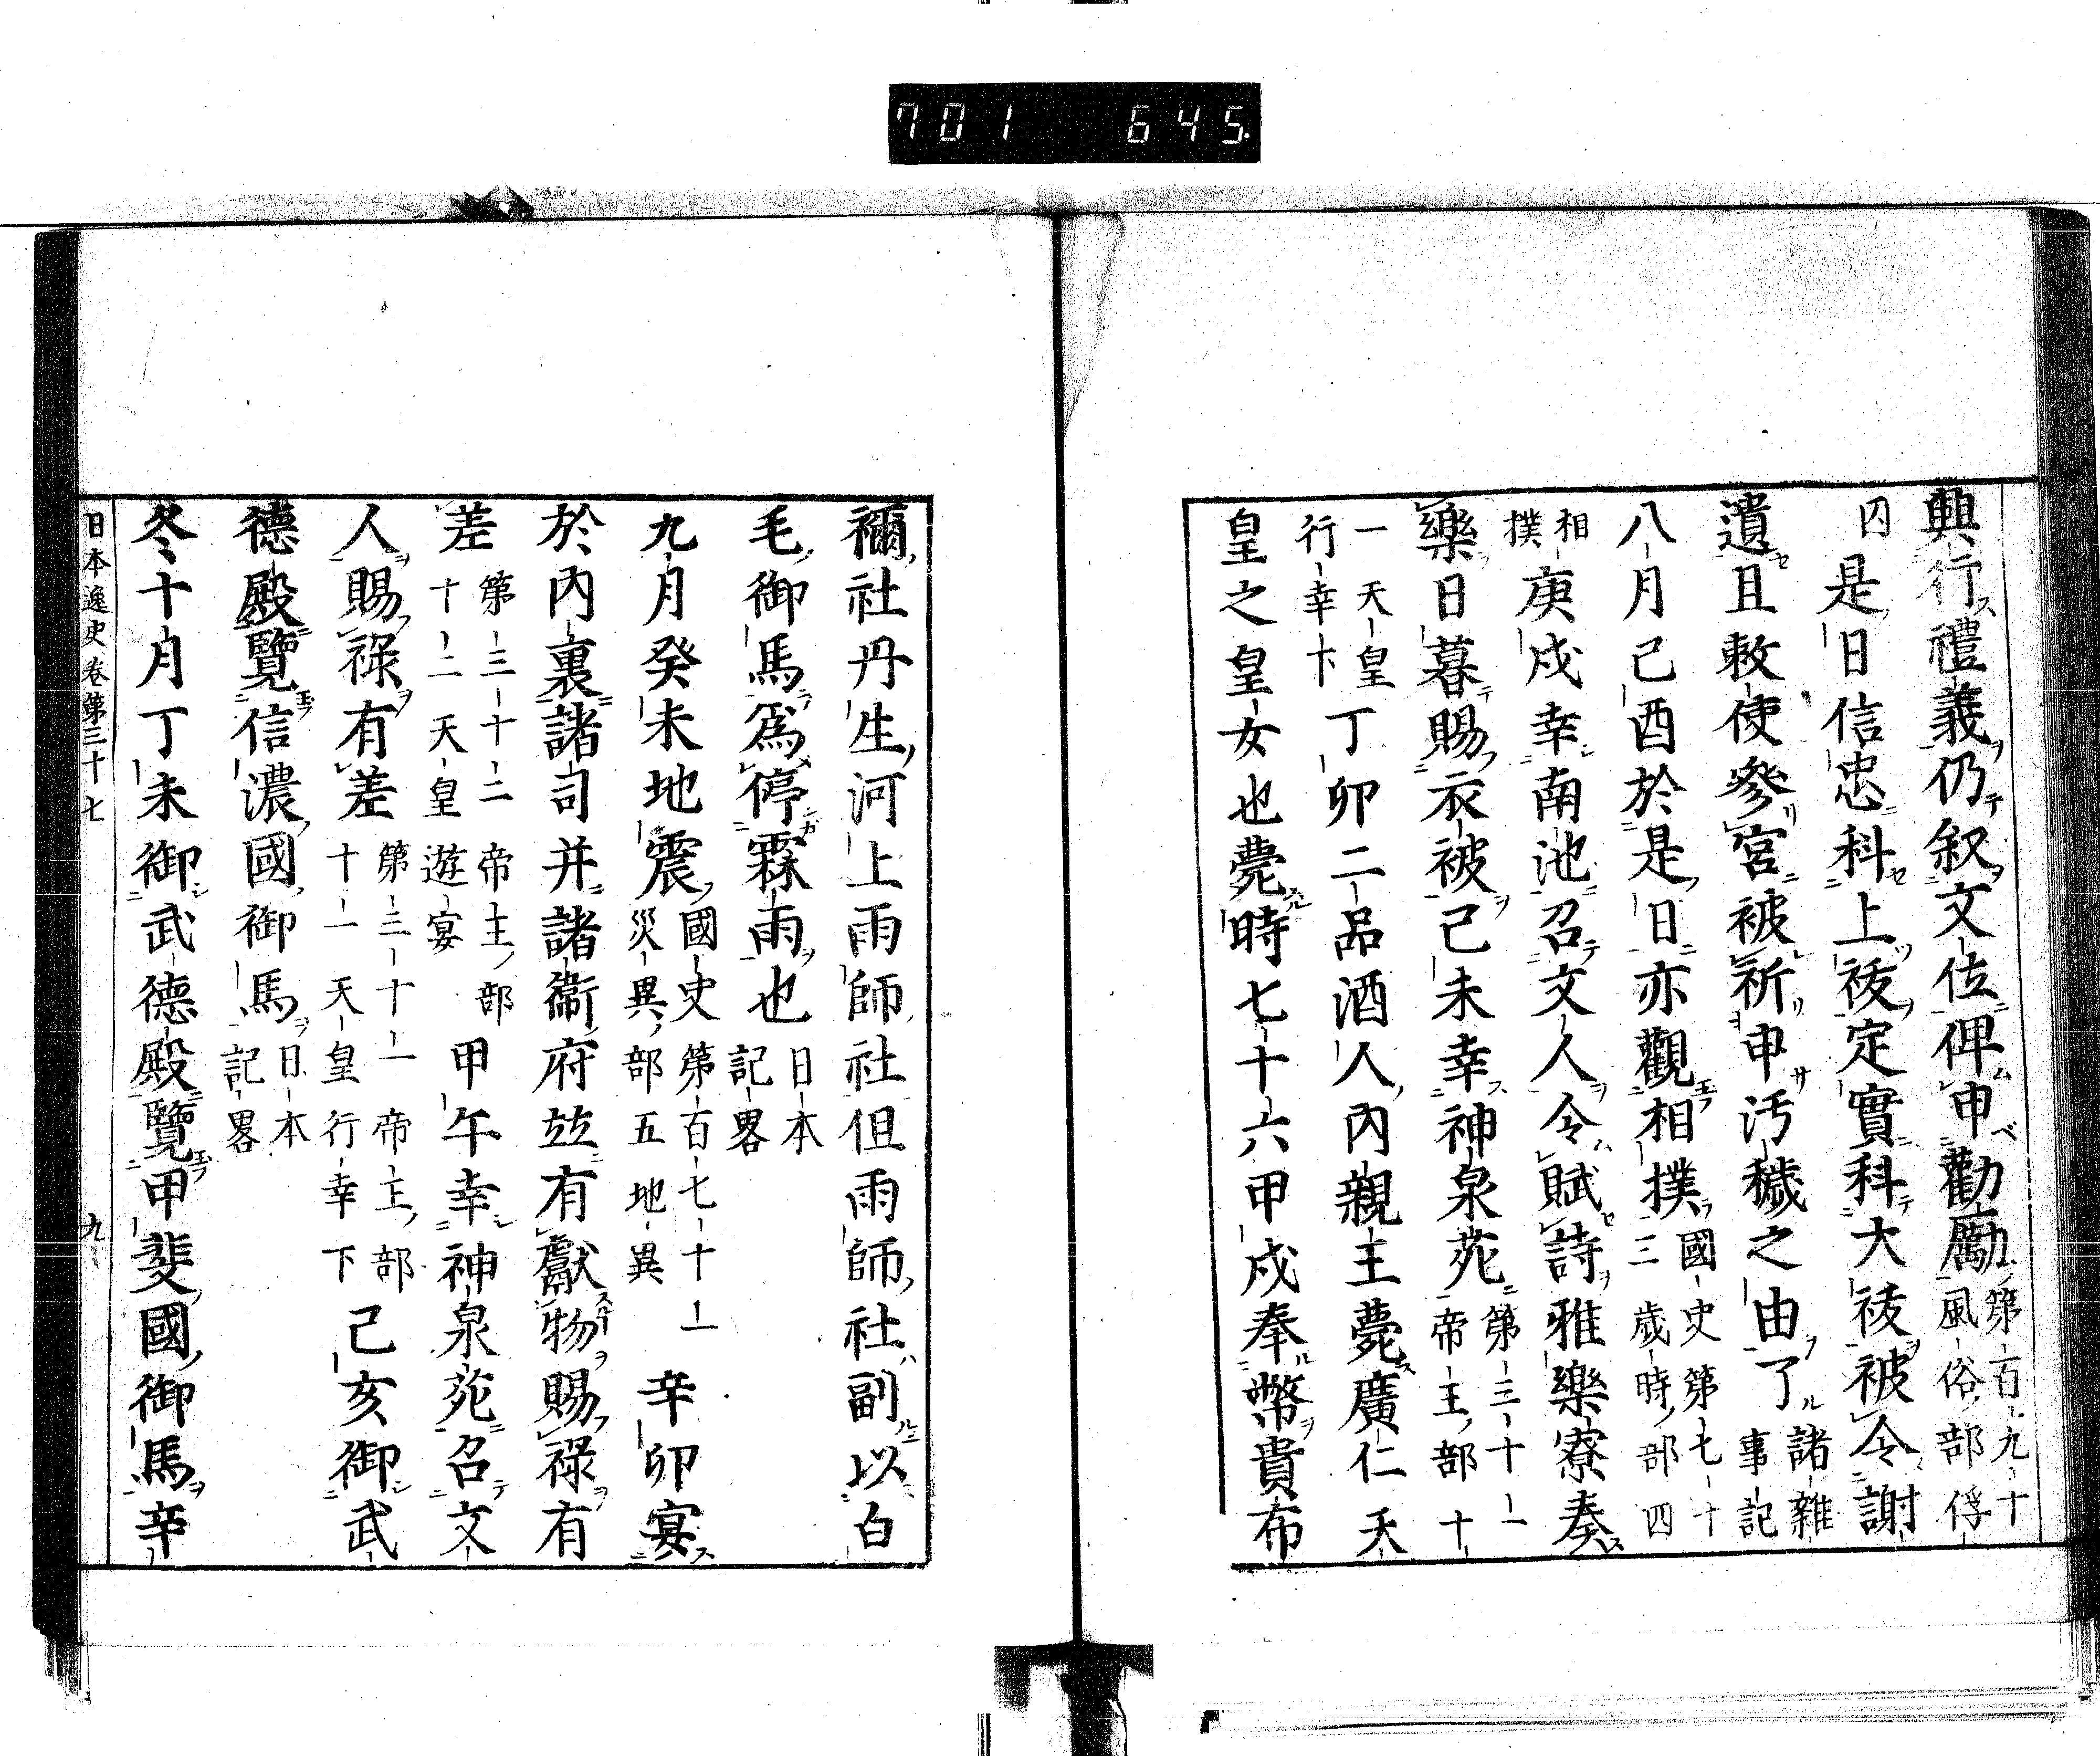 701 645
興行禮義仍叙文位俾申勸勵第百九十風俗部俘
囚是日信忠科上祓定實科大祓被令謝
遺且敕使參宮被祈申汚穢之由了諸雜事記
八月己酉於是日亦觀相撲國史第七十三歲時部四
相撲庚戌幸南池召文人令賦詩雅樂寮奏
樂日暮賜衣被己未幸神泉苑第三十一帝王部十
一天皇行幸下丁卯二品酒人內親王薨廣仁天
皇之皇女也薨時七十六甲戌奉幣貴布
禰社丹生河上雨師社但雨師社副以白
毛御馬爲停霖雨也日本記畧
九月癸未地震國史第百七十一災異部五地異辛卯宴
於內裏諸司并諸衞府竝有獻物賜祿有
差第三十二帝王部十二天皇遊宴甲午幸神泉苑召文
人賜祿有差第三十一帝王部十一天皇行幸下己亥御武
德殿覽信濃國御馬日本記畧
冬十月丁未御武德殿覽甲斐國御馬辛
日本逸史卷第三十七 九